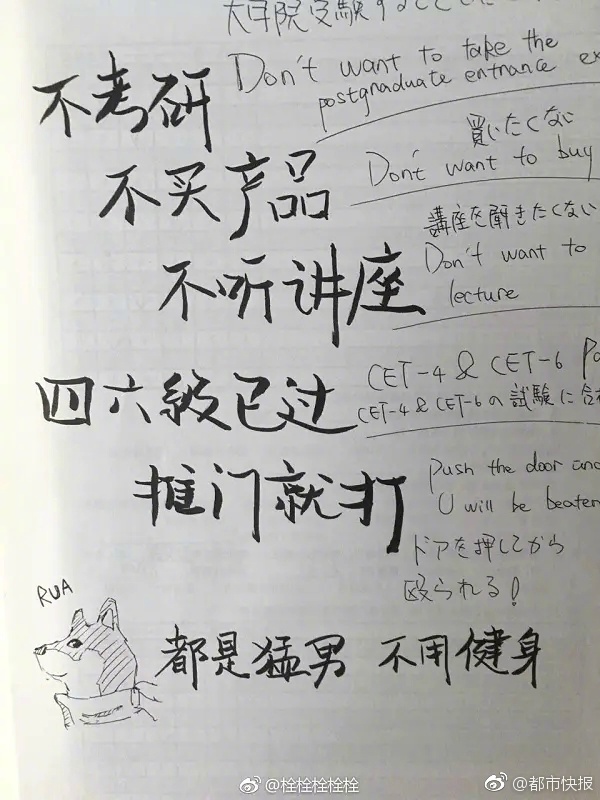 大学院受験することした
不考研
Don't want to take the
postgraduate entrance ex
不买产品
買いたくない
Don't want to buy
不听讲座
講座を聞きたくない
Don't want to
lecture
四六級已过
CET-4 & CET-6 Pa
CET-4 & CET-6の試験に合
推门就打
Push the door and
U will be beaten
ドアを押してから
殴られる!
RUA
都是猛男 不用健身
@栓栓栓栓栓
@都市快报